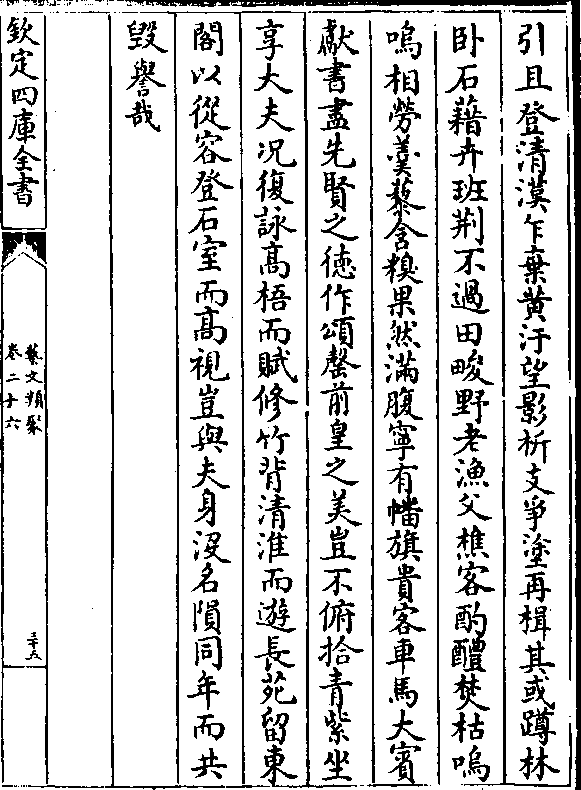 引且登清漠乍棄黄汙望影析支爭塗再楫其或蹲林
卧石藉卉班荆不過田畯野老漁父樵客酌醴焚枯嗚
嗚相勞羮藜含糗果然滿腹寧有幡旗貴客車馬大賓
獻書盡先賢之徳作頌罄前皇之美豈不俯拾青紫坐
享大夫况復詠髙梧而賦修竹背清淮而遊長苑留東
閣以從容登石室而髙視豈與夫身没名隕同年而共
毁譽哉
欽定四庫全書
藝文類聚
卷二十六
三十五